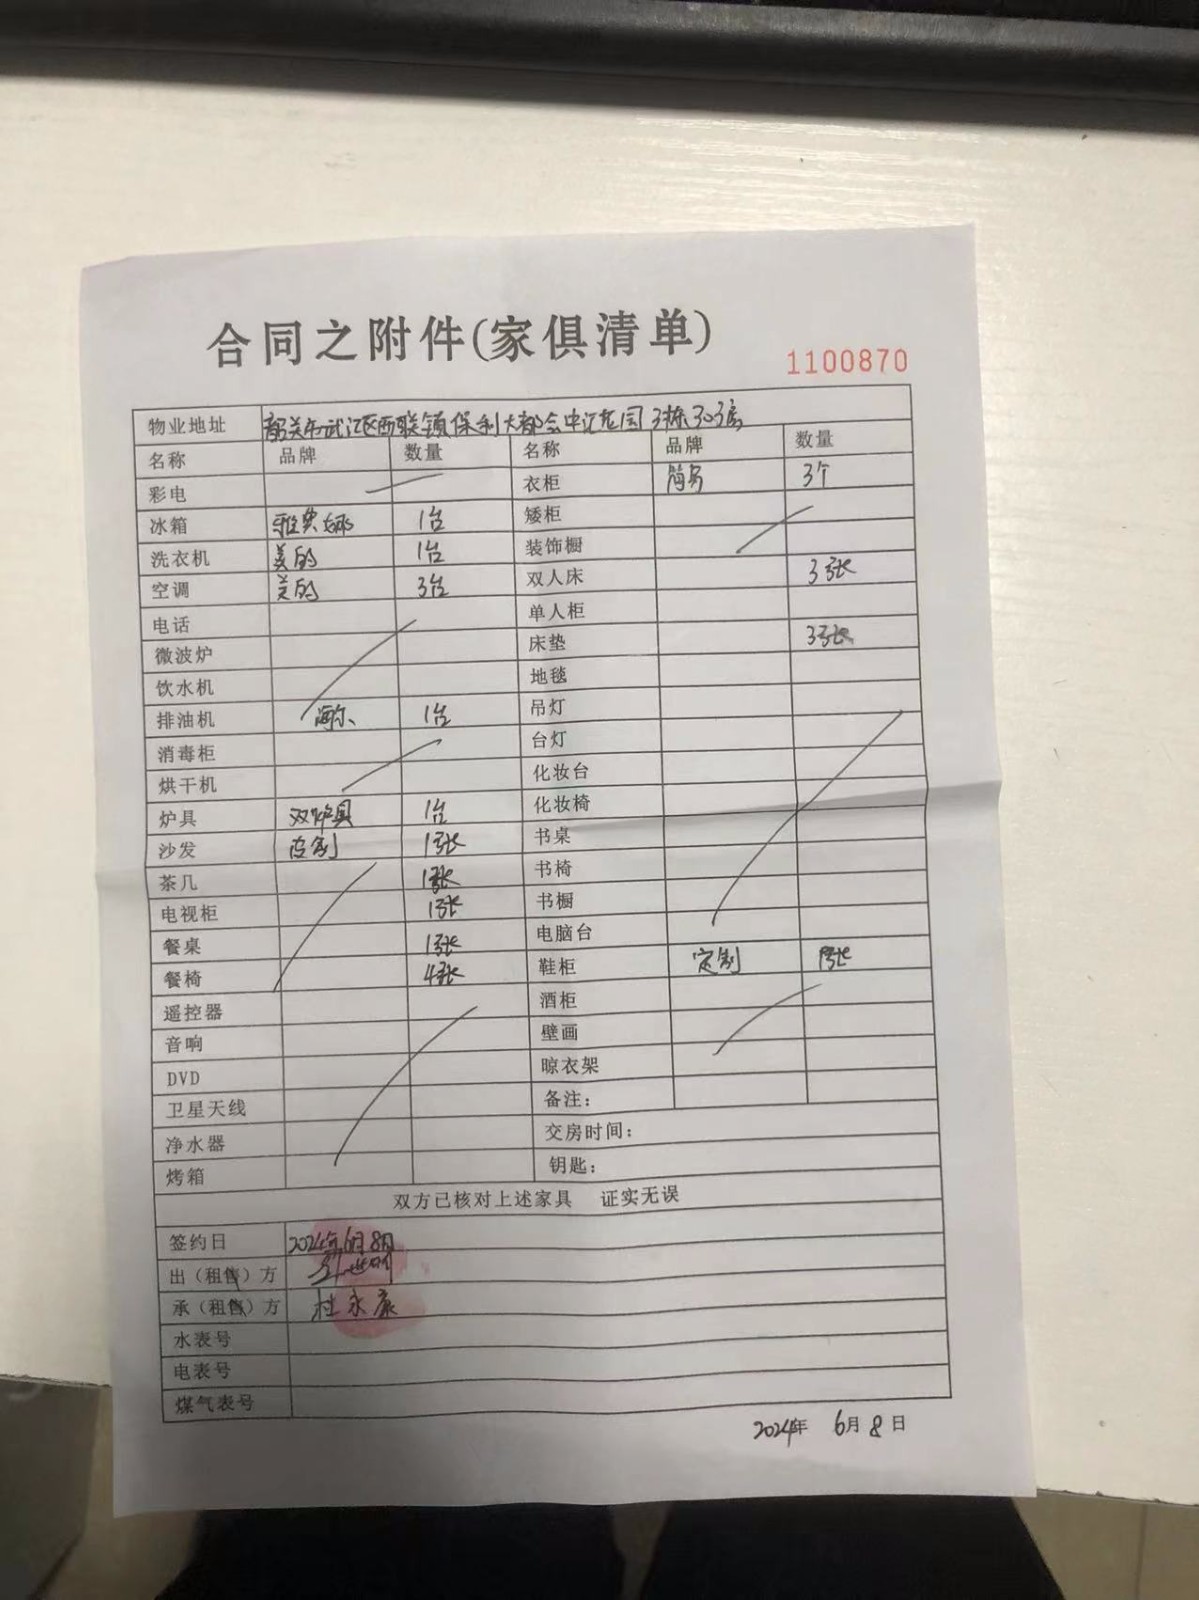 合同之附件(家俱清单)
1100870
物业地址 韶关市武江区西联镇保利大都会中汇花园3栋303房
名称 品牌 数量 名称 品牌 数量
彩电 衣柜 3个
冰箱 雅典娜 1台 矮柜
洗衣机 美的 1台 装饰橱
空调 美的 3台 双人床 3张
电话 单人柜
微波炉 床垫 3张
饮水机 地毯
排油机 海尔 1台 吊灯
消毒柜 台灯
烘干机 化妆台
炉具 双炉具 1台 化妆椅
沙发 皮制 1张 书桌
茶几 1张 书椅
电视柜 1张 书橱
餐桌 1张 电脑台
餐椅 4张 鞋柜 定制 1张
遥控器 酒柜
音响 壁画
DVD 晾衣架
卫星天线 备注:
净水器 交房时间:
烤箱 钥匙:
双方已核对上述家具 证实无误
签约日 2024年6月8日
出(租售)方
承(租售)方 杜永康
水表号
电表号
煤气表号
2024年 6月8日